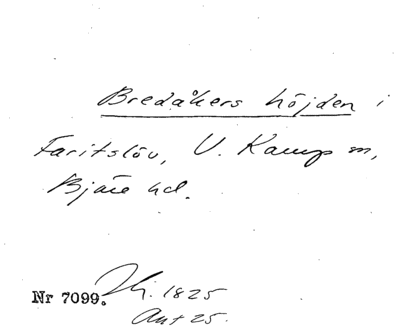 Bredåkers höjden i
Faritslöv, V. Karup sn,
Bjäre hd.
Nr 7099. 1825
Ant 25.